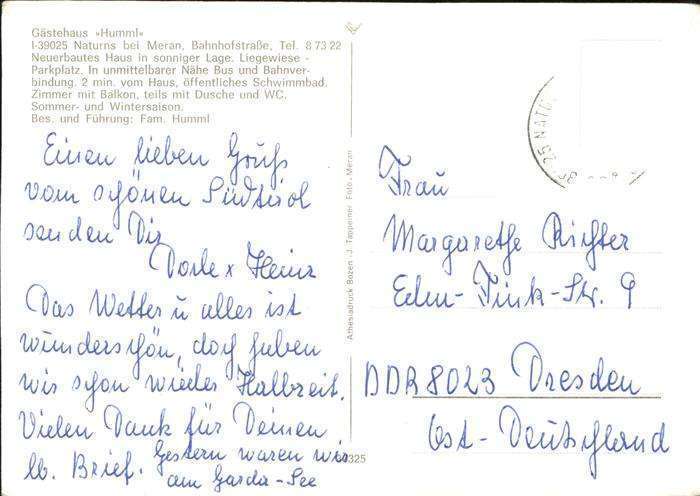 Gästehaus »Humml«
I-39025 Naturns bei Meran, Bahnhofstraße, Tel. 8 73 22
Neuerbautes Haus in sonniger Lage. Liegewiese -
Parkplatz. In unmittelbarer Nähe Bus und Bahnver-
bindung. 2 min. vom Haus, öffentliches Schwimmbad.
Zimmer mit Balkon, teils mit Dusche und WC.
Sommer- und Wintersaison.
Bes. und Führung: Fam. Humml
Einen lieben Gruß
vom schönen Südtirol
senden Dir
Dorle + Heinz
Das Wetter u alles ist
wunderschön, doch haben
wir schon wieder Halbzeit.
Vielen Dank für Deinen
lb. Brief. Gestern waren wir
am Garda-See
Athesiadruck Bozen - J. Tappeiner Foto - Meran
325
Frau
Margarethe Richter
Str. 9
DDR 8023 Dresden
Ost-Deutschland